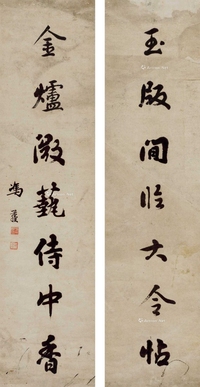 玉版閒臨大令帖
金爐微爇侍中香
馮